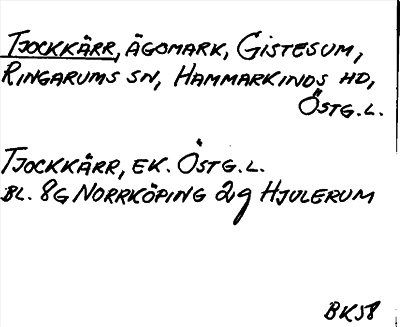 TJOCKKÄRR, ÄGOMARK, GISTESUM,
RINGARUMS SN, HAMMARKINDS HD,
ÖSTG.L.
TJOCKKÄRR, EK. ÖSTG.L.
BL. 8G NORRKÖPING 2g HJULERUM
BK58